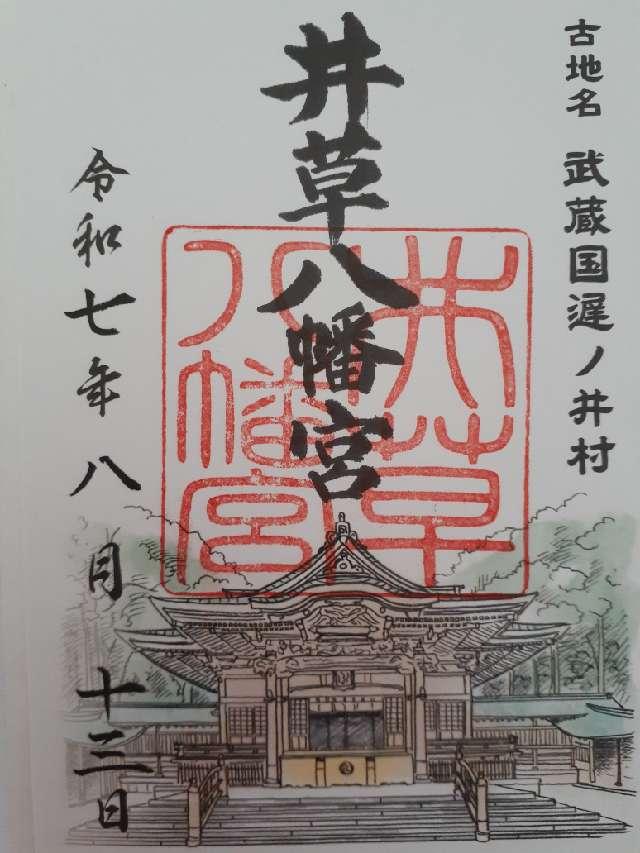 古地名 武蔵国遅ノ井村
井草八幡宮
井草八幡宮
令和七年八月十三日